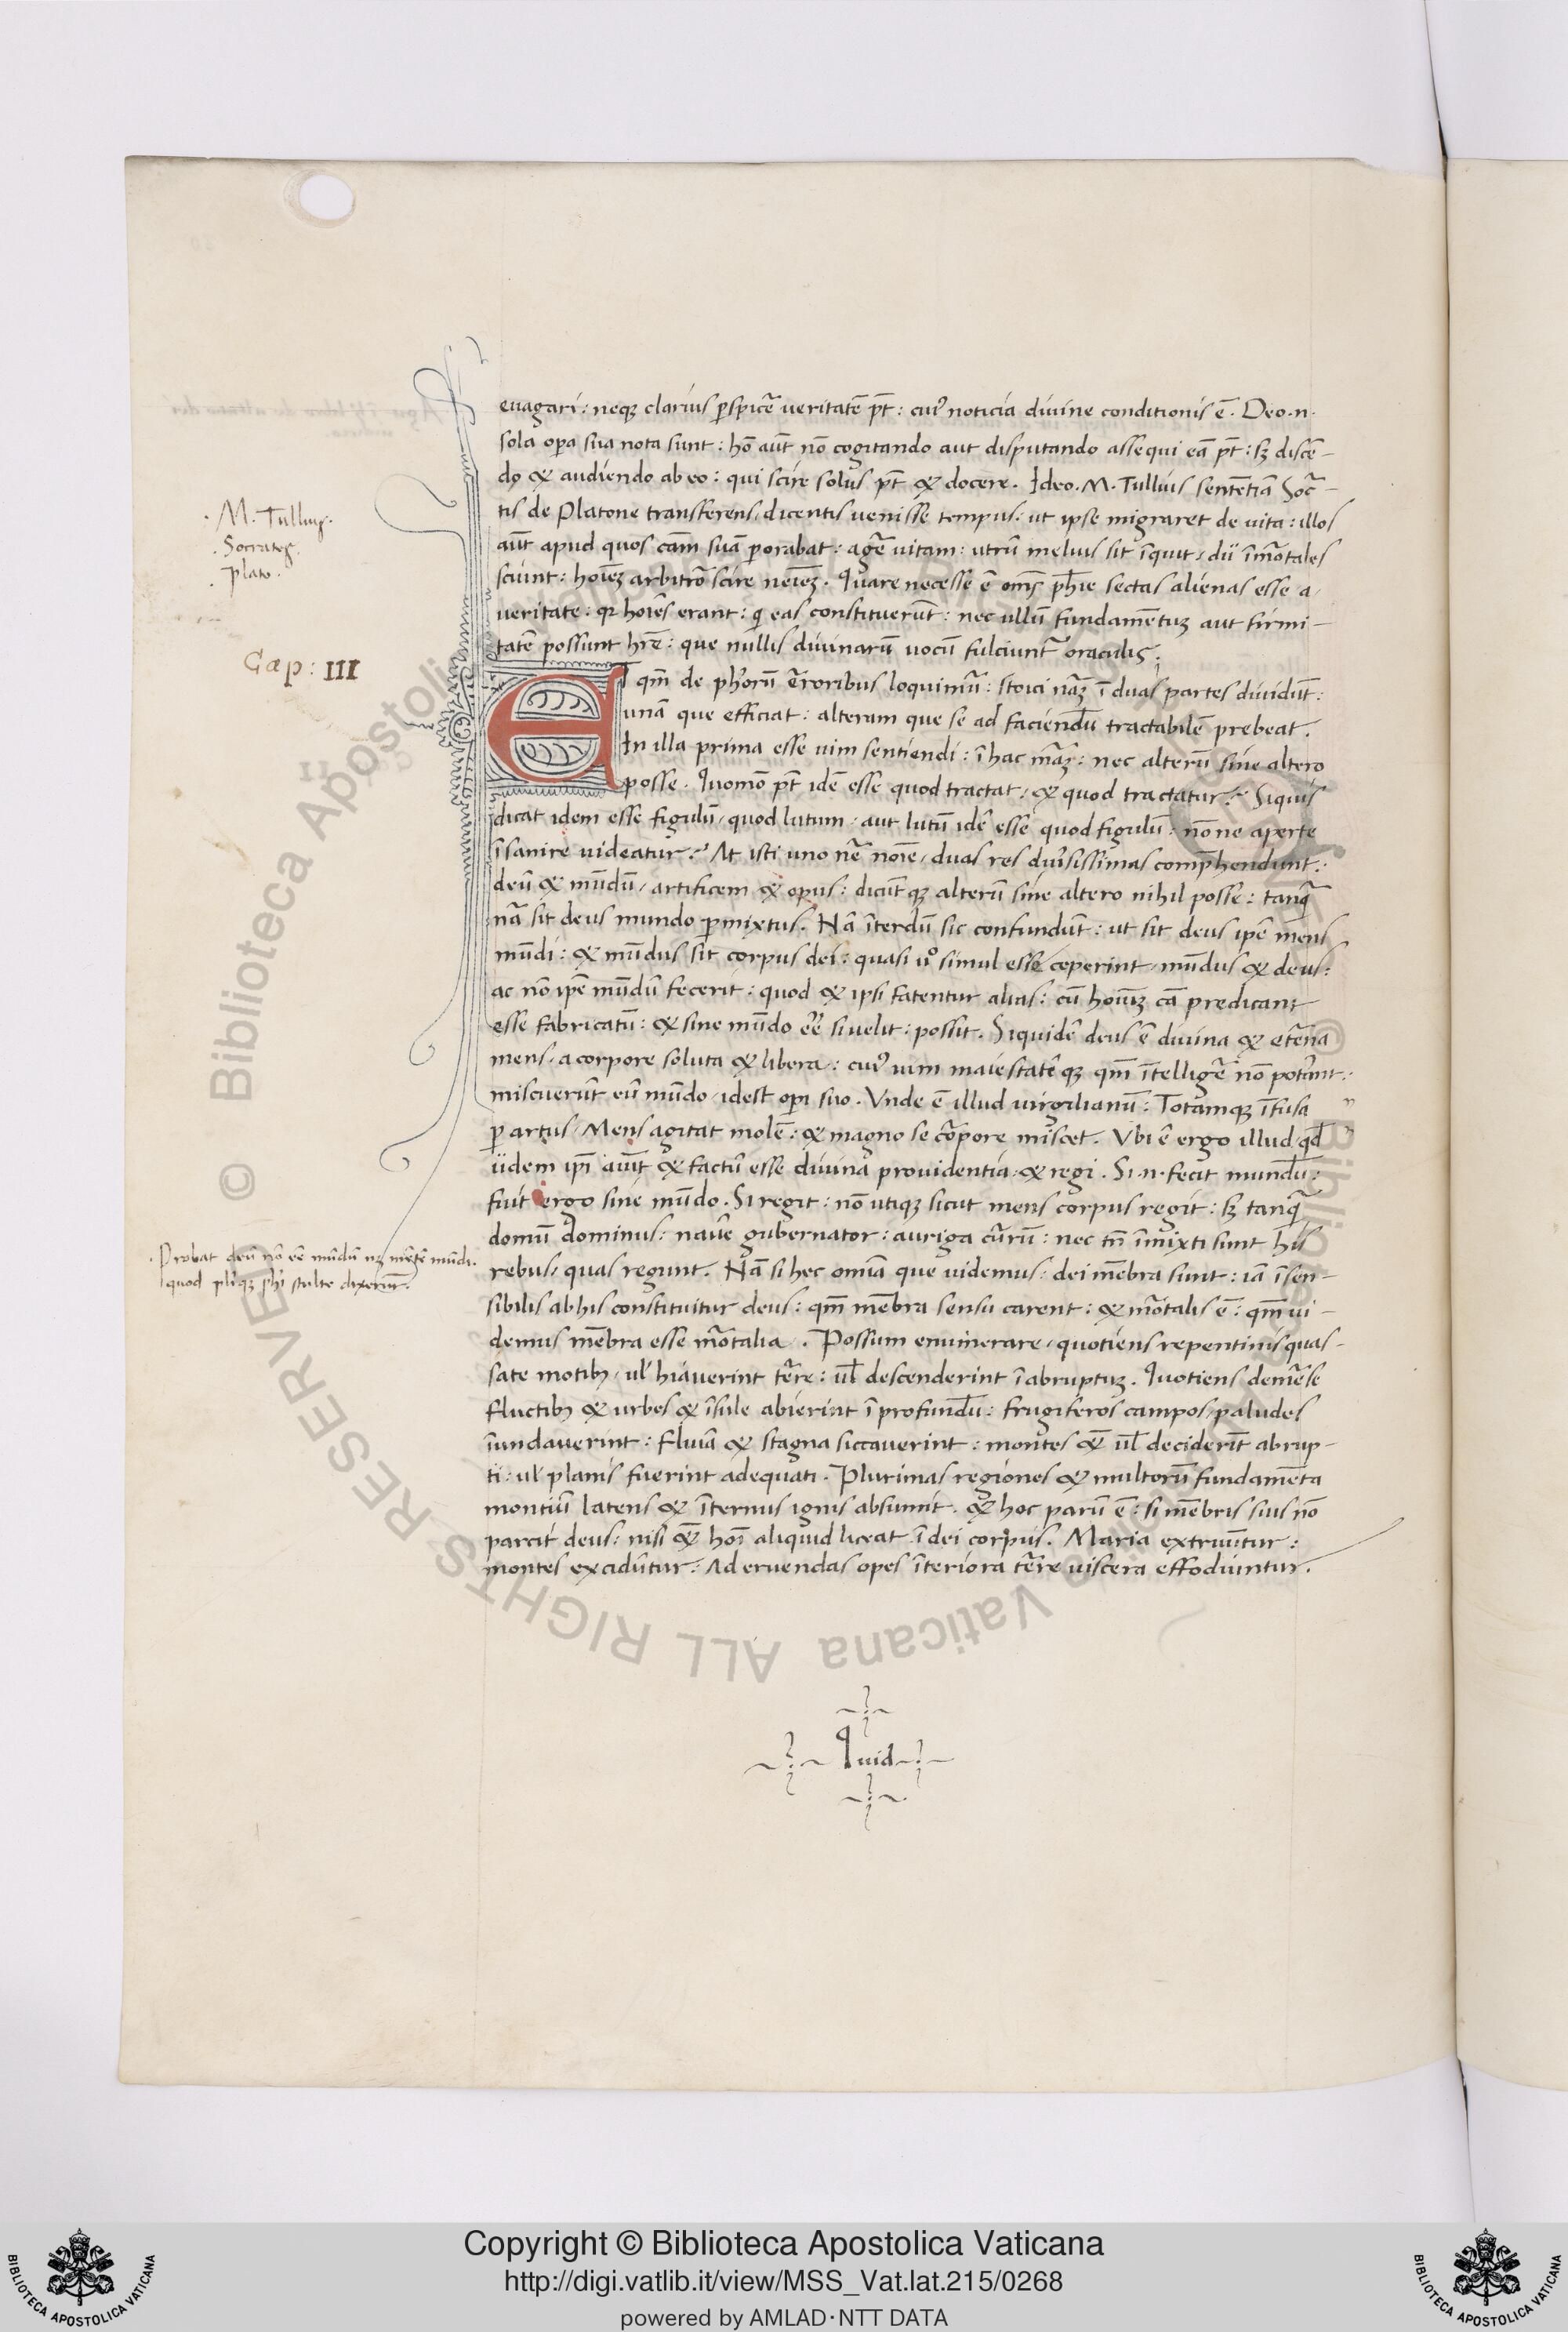 euagari: neqꝫ clarius ꝑspicẽ veritatẽ p̃t: cui᷒ noticia divine conditionis ẽ. Deo .n.
sola oꝑa sua nota sunt: hõ aũt nõ cogitando aut disputando assequi eã p̃t: sꝫ discẽ-
do & audiendo ab eo: qui scire solus p̃t & docere. Ideo .M. Tullius sentẽtiã Soc̃-
tis de Platone transferens, dicentis venisse tempus, ut ipse migraret de vita: illos
aũt apud quos cãm suã ꝑorabat: agẽ vitam: utrũ melius sit ĩquit, dii ĩm̃otales
sciunt: hoiẽꝫ arbitrõ scire neiẽꝫ. Quare necesse ẽ om̃s ph̃ie sectas alienas esse a
veritate: qꝛ hoiẽs erant: qi eas constituerũt: nec ullũ fundamẽtuꝫ aut firmi-
tatẽ possunt hr̃e: que nullis divinarũ vocũ fulciunt̃ oraculis;
M. Tullius.
Socrates.
Plato.
Cap: III
ET qm̃ de ph'orũ er̃roribus loquimũ: stoici nãꝫ ĩ duas partes dividũt:
unã que efficiat: alteram que se ad faciendũ tractabilẽ prebeat.
In illa prima esse vim sentiendi: ĩ hac mãꝫ: nec alterũ sine altero
posse. Quomõ p̃t idẽ esse quod tractat, & quod tractatur? Siquis
dicat idem esse figulũ, quod lutum, aut lutũ idẽ esse quod figulũ: nõne aperte
ĩsanire videatur? At isti uno nẽ noĩe, duas res dui᷒sissimas comp̃hendunt:
deũ & mũdũ, artificem & opus: dicũtqꝫ alterũ sine altero nihil posse: tanq̃
nã sit deus mundo ꝑmixtus. Nã ĩterdũ sic confundũt: ut sit deus ip̃e mens
mũdi: & mũdus sit corpus dei: quasi v̊o simul esse ceperint, mũdus & deus:
ac nõ ip̃e mũdũ fecerit: quod & ipsi fatentur alias: cũ hoiuꝫ cã predicant
esse fabricatũ: & sine mũdo eẽ si velit: possit. Siquidẽ deus ẽ divina & et̃ena
mens, a corpore soluta & libera: cui᷒ vim maiestatẽqꝫ qm̃ ĩtelligẽ nõ potãnt:
miscuerũt eũ mũdo, idest oꝑi suo. Vnde ẽ illud virgilianũ: Totamqꝫ ĩfusa
ꝑ artus, Mens agitat molẽ: & magno se c̃opore miscet. Vbi ẽ ergo illud qd̃
iidem ip̃i aiũt & factũ esse divina providentia: & regi. Si .n. fecit mundũ:
fuit ergo sine mũdo. Si regit: nõ utiqꝫ sicut mens corpus regit: sꝫ tanq̃
domũ dominus: navẽ gubernator: auriga cũrũ: nec tñ ĩmixti sunt his
rebus, quas regunt. Nã si hec omĩa que videmus: dei mẽbra sunt: iã ĩsen-
sibilis ab his constituitur deus: qm̃ mẽbra sensu carent: & m̃otalis ẽ: qm̃ vi-
demus mẽbra esse m̃otalia. Possum enumerare, quotiens repentinis quas-
sate motibꝫ, ul' hiaverint ter̃e: ul̃ descenderint ĩ abruptuꝫ. Quotiens dem̃ese
fluctibꝫ & urbes & ĩsule abierint ĩ profundũ: frugiferos campos, paludes
ĩundaverint: fluĩa & stagna siccaverint: montes &̃ ul̃ deciderĩt abrup-
ti: ul' planis fuerint adequati. Plurimas regiones & multorũ fundamẽta
montiũ latens & ĩternus ignis absumit. & hoc parũ ẽ: si mẽbris suis nõ
parcit deus: nisi &̃ hoĩ aliquid liceat ĩ dei corpus. Maria extruũtur:
montes excidũtur: Ad eruendas opes ĩteriora ter̃e viscera effodiuntur.
.Probat deũ nõ eẽ mũdũ nꝫ mẽtẽ mũdi.
quod pl'iqꝫ ph'i stulte dixerũt.
Quid
Copyright © Biblioteca Apostolica Vaticana
http://digi.vatlib.it/view/MSS_Vat.lat.215/0268
powered by AMLAD·NTT DATA
© Biblioteca Apostolica Vaticana ALL RIGHTS RESERVED
BIBLIOTECA APOSTOLICA VATICANA
BIBLIOTECA APOSTOLICA VATICANA